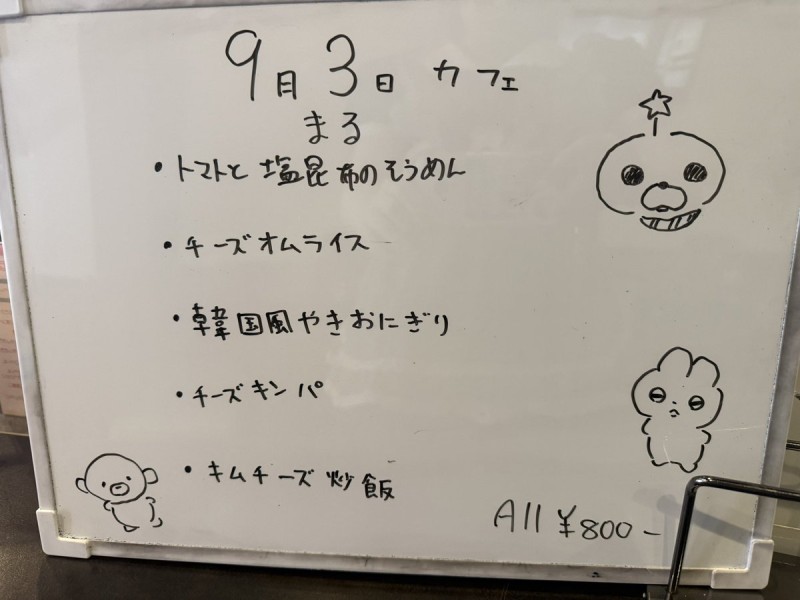 9月3日 カフェ
まる
・トマトと塩昆布のそうめん
・チーズオムライス
・韓国風やきおにぎり
・チーズキンパ
・キムチーズ炒飯
All ¥800-